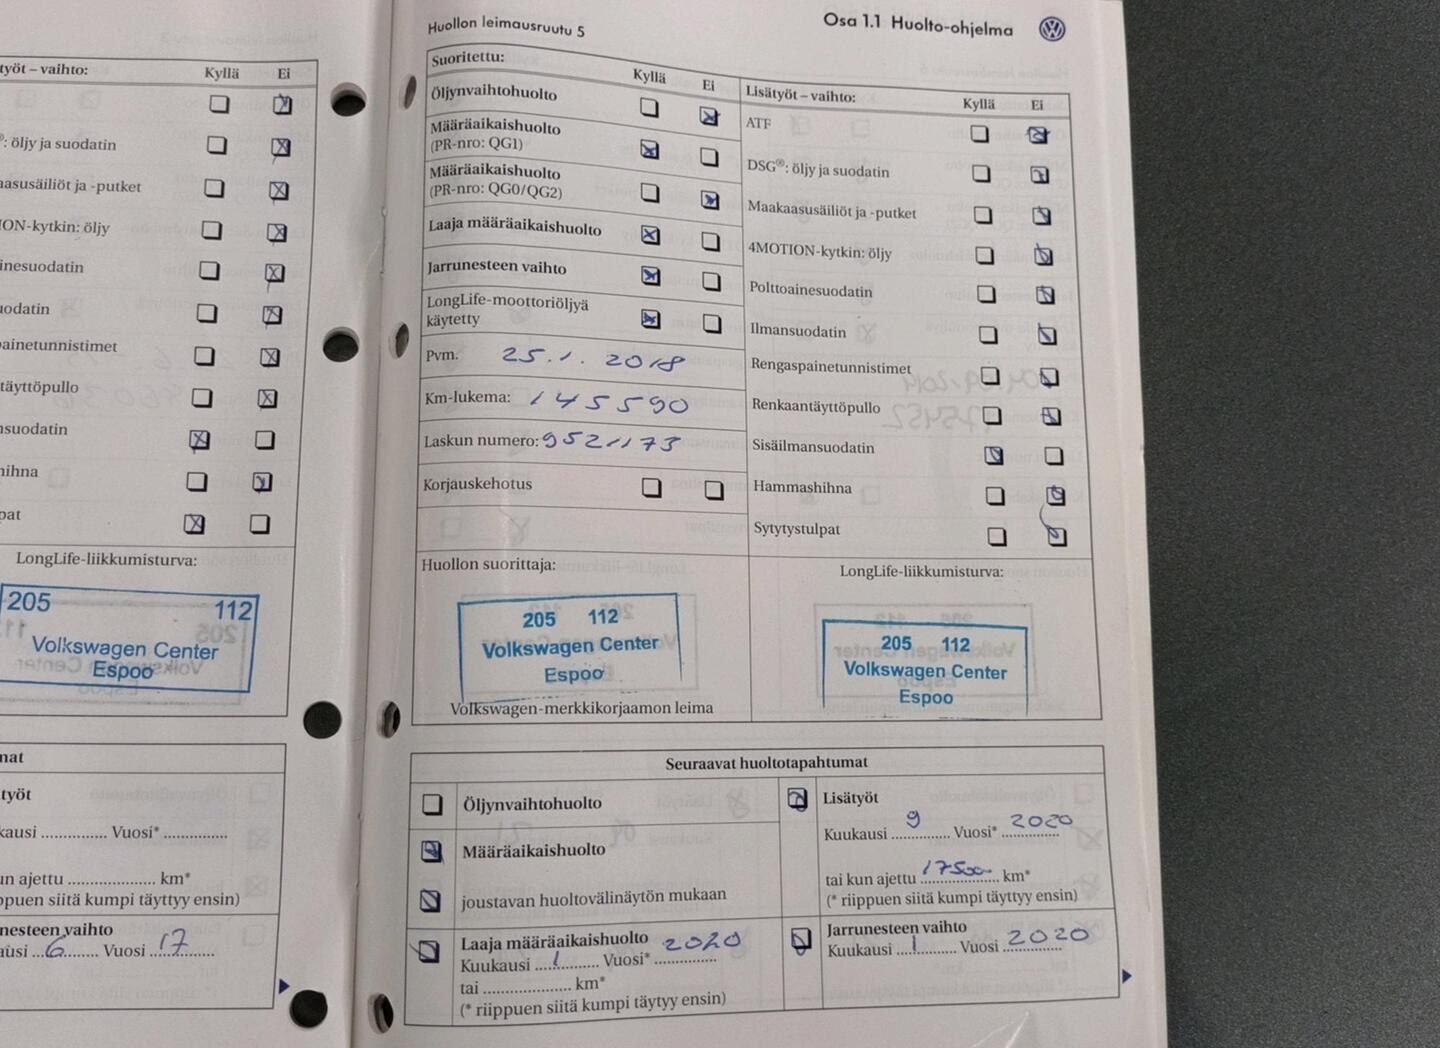 työt – vaihto: Kyllä Ei
: öljy ja suodatin
aasusäiliöt ja -putket
ION-kytkin: öljy
inesuodatin
uodatin
painetunnistimet
täyttöpullo
nsuodatin
nihna
pat
LongLife-liikkumisturva:
205 112
Volkswagen Center
Espoo
mat
työt
kausi .............. Vuosi* ..............
un ajettu .................... km*
ppuen siitä kumpi täyttyy ensin)
nesteen vaihto
ausi ...6........ Vuosi ...17.......
Huollon leimausruutu 5
Osa 1.1 Huolto-ohjelma
Suoritettu: Kyllä Ei
Öljynvaihtohuolto
Määräaikaishuolto
(PR-nro: QG1)
Määräaikaishuolto
(PR-nro: QG0/QG2)
Laaja määräaikaishuolto
Jarrunesteen vaihto
LongLife-moottoriöljyä
käytetty
Pvm. 25.1.2018
Km-lukema: 145590
Laskun numero: 9521173
Korjauskehotus
Lisätyöt – vaihto: Kyllä Ei
ATF
DSG®: öljy ja suodatin
Maakaasusäiliöt ja -putket
4MOTION-kytkin: öljy
Polttoainesuodatin
Ilmansuodatin
Rengaspainetunnistimet
Renkaantäyttöpullo
Sisäilmansuodatin
Hammashihna
Sytytystulpat
Huollon suorittaja:
205 112
Volkswagen Center
Espoo
Volkswagen-merkkikorjaamon leima
LongLife-liikkumisturva:
205 112
Volkswagen Center
Espoo
Seuraavat huoltotapahtumat
Öljynvaihtohuolto
Määräaikaishuolto
joustavan huoltovälinäytön mukaan
Laaja määräaikaishuolto 2020
Kuukausi ....1........ Vuosi* ..............
tai .................... km*
(* riippuen siitä kumpi täytyy ensin)
Lisätyöt
Kuukausi 9 Vuosi* 2020
tai kun ajettu 17500 km*
(* riippuen siitä kumpi täyttyy ensin)
Jarrunesteen vaihto
Kuukausi ....1....... Vuosi 2020